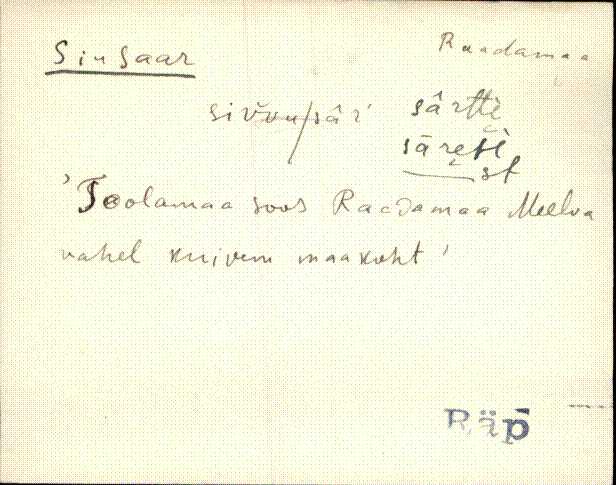 Siusaar
Raadamaa
sâr̀ sârttè
sāretè
st
'Toolamaa soos Raadamaa Meelva
vahel kuivem maakoht'
Räp